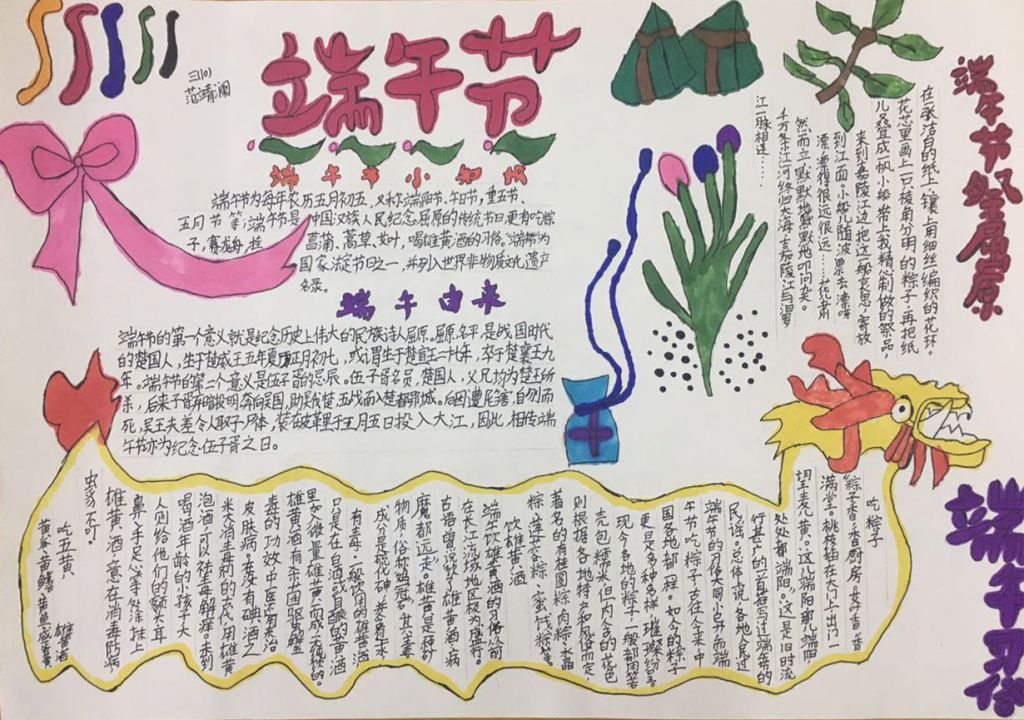 三(10)
范靖澜
端午节
端午节小知识
端午节为每年农历五月初五,又称端阳节、午日节、重五节、
五月节等,端午节是中国汉族人民纪念屈原的传统节日,更有吃粽
子,赛龙舟,挂菖蒲、蒿草、艾叶,喝雄黄酒的习俗。"端午节"为
国家法定节日之一,并列入世界非物质文化遗产
名录。
端午由来
端午节的第一个意义就是纪念历史上伟大的民族诗人屈原。屈原,名平,是战国时代
的楚国人,生于楚威王五年夏历正月初七,或谓生于楚宣王二十七年,卒于楚襄王九
年。端午节的第二个意义是伍子胥的忌辰。伍子胥名员,楚国人,父兄均为楚王所
杀,后来子胥弃暗投明,奔向吴国,助吴伐楚,五战而入楚都郢城。
死,吴王夫差令人取子尸体,装在皮革里于五月五日投入大江,因此,相传端
午节亦为纪念伍子胥之日。
端午节祭屈原
在张洁白的纸上,镶一角细丝编织的花环。
花芯里画上一只棱角分明的粽子,再把纸
儿叠成一帆小船,带上我精心制做的祭品,
来到嘉陵江边,把这一船哀思,寄放
到江面。小船儿随波漂去,漂呀
漂,漂得很远很远……
然而立,默默默默默地叩问:
千万条江河终归大海,嘉陵江与汨罗
江一脉相连……
端午习俗
吃粽子
粽子香,香厨房。艾叶香,香
满堂。桃枝插在大门上,出门一
望麦儿黄。这儿端阳,那儿端阳,
处处都端阳。这是旧时流
行甚广的一首描写过端午节的
民谣。总体上说,各地人民过
端午节的习俗大同小异,而端
午节吃粽子,古往今来,中
国各地都一样。如今的粽子
更是多种多样,璀璨纷呈。
现今各地的粽子,一般都用箬
壳包糯米,但内含的花色
则根据各地特产和风俗而定,
著名的有桂圆粽、肉粽、水晶
粽、莲蓉粽、蜜饯粽等
饮雄黄酒
端午饮雄黄酒的习俗,从前
在长江流域地区极为盛行。
古语曾说"喝了雄黄酒,病
魔都远走"。雄黄是一种矿
物质,俗称"鸡冠石",其主要
成分是硫化砷,并含有汞,
有毒。一般饮用的雄黄酒,
只是在白酒或自酿的黄酒
里加入微量雄黄而成,无纯饮的。
雄黄酒有杀菌驱虫解
毒的功效,中医还用来治
皮肤病。在没有碘酒之
类消毒剂的古代,用雄黄
泡酒,可以祛毒解痒。未到
喝酒年龄的小孩子,大
人则给他们的额头、耳
鼻、手足心等处涂抹上
雄黄酒,意在消毒防病,
虫豸不叮。
吃五黄
黄瓜、黄鳝、黄鱼、咸蛋黄、
雄黄酒